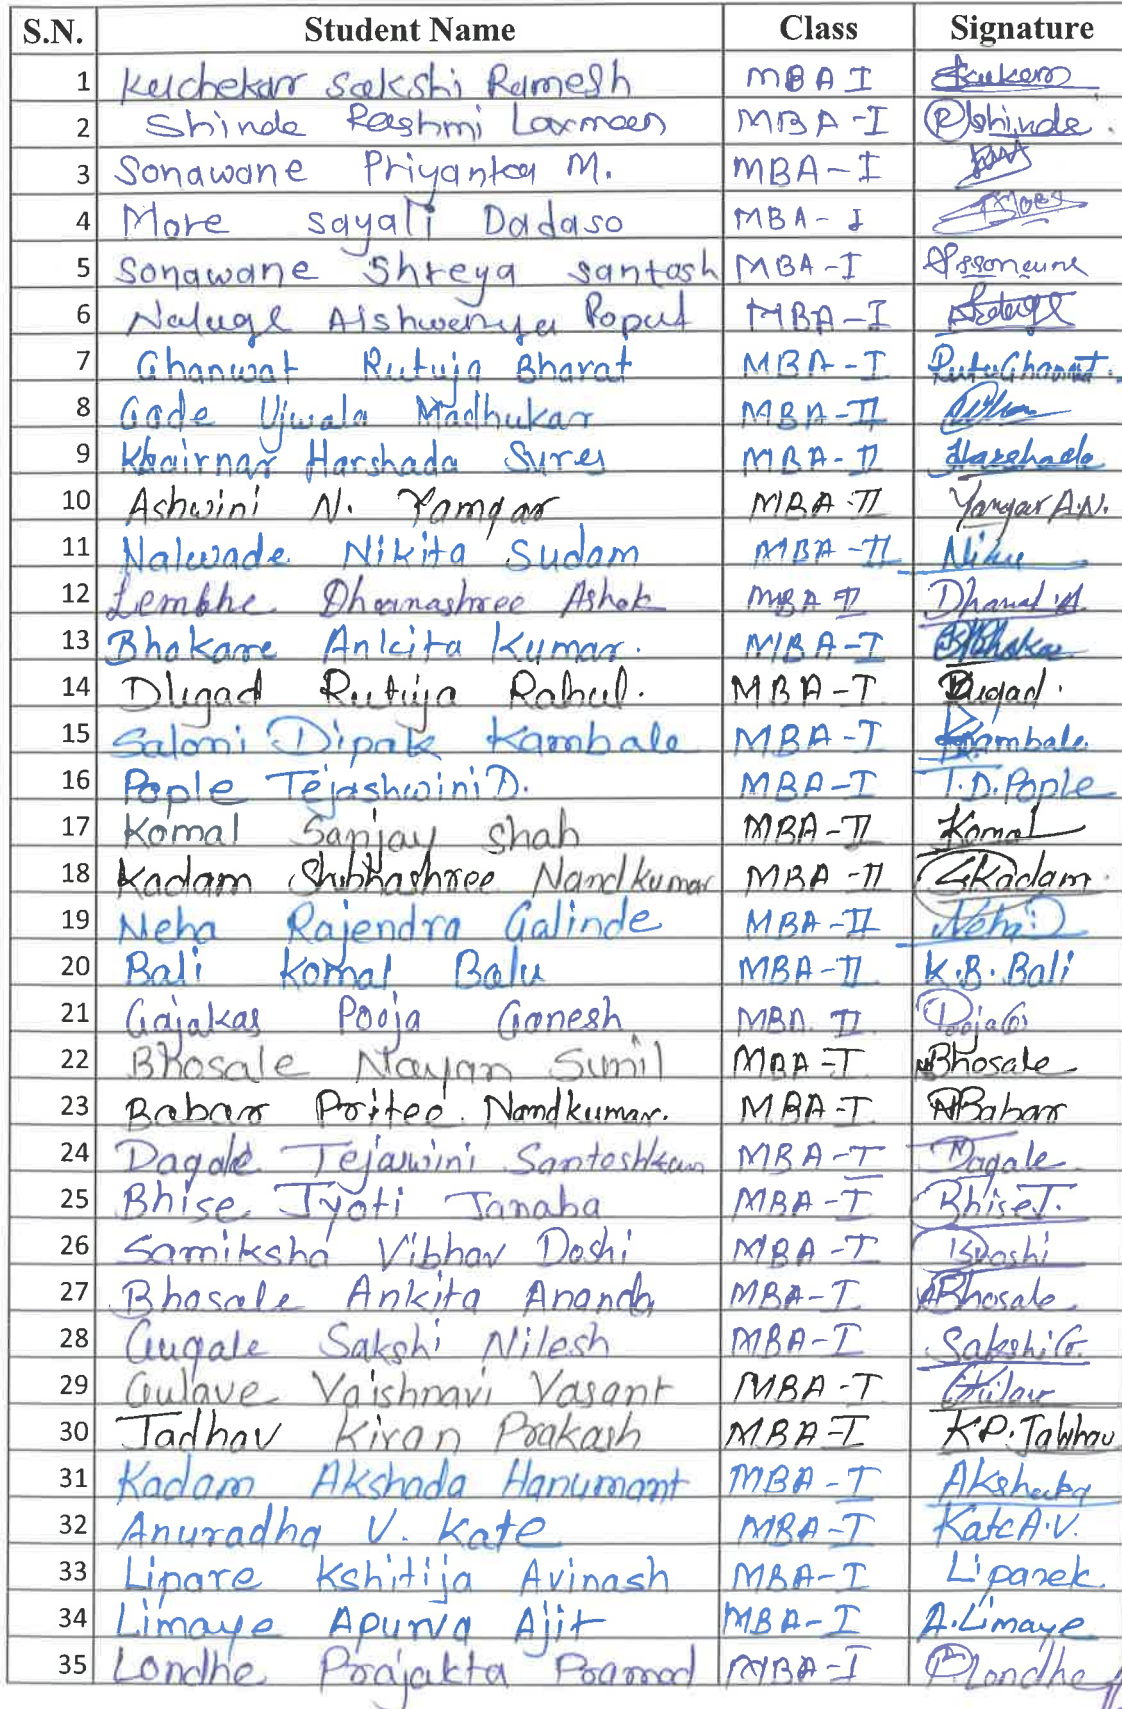 S.N. Student Name Class Signature
1 Kuchekar Sakshi Ramesh MBA I
2 Shinde Rashmi Laxman MBA-I Rshinde.
3 Sonawane Priyanka M. MBA-I
4 More Sayali Dadaso MBA-I More
5 Sonawane Shreya Santosh MBA-I
6 Nalage Aishwarya Poput MBA-I
7 Ghanwat Rutuja Bharat MBA-I RutuGhanwat.
8 Gade Ujwala Madhukar MBA-II
9 Khairnar Harshada Sures MBA-II Harshada
10 Ashwini N. Yamgar MBA-II Yamgar A.N.
11 Nalwade Nikita Sudam MBA-II Niku
12 Lembhe Dhanashree Ashok MBA II
13 Bhakare Ankita Kumar. MBA-I
14 Dugad Rutuja Rahul. MBA-I Dugad.
15 Saloni Dipak Kambale MBA-I Kambale.
16 Pople Tejashwini D. MBA-I T.D.Pople
17 Komal Sanjay Shah MBA-II Komal
18 Kadam Shubhashree Nandkumar MBA-II SKadam.
19 Neha Rajendra Galinde MBA-II Neha
20 Bali Komal Balu MBA-II K.B.Bali
21 Gajakas Pooja Ganesh MBA. II PoojaG
22 Bhosale Nayan Sunil MBA-I Bhosale
23 Babar Pritee. Nandkumar. MBA-I Babar
24 Dagale Tejaswini Santoshkum MBA-I Dagale
25 Bhise Jyoti Tanaba MBA-I BhiseJ.
26 Samiksha Vibhav Doshi MBA-I Doshi
27 Bhosale Ankita Anandh MBA-I ABhosale
28 Gugale Sakshi Nilesh MBA-I Sakshi G.
29 Gulave Vaishnavi Vasant MBA-I
30 Jadhav Kiran Prakash MBA-I K.P.Jadhav
31 Kadam Akshada Hanumant MBA-I
32 Anuradha V. Kate MBA-I Kate A.V.
33 Lipare Kshitija Avinash MBA-I Liparek.
34 Limaye Apurva Ajit MBA-I A.Limaye
35 Londhe Prajakta Pramod MBA-I Plondhe